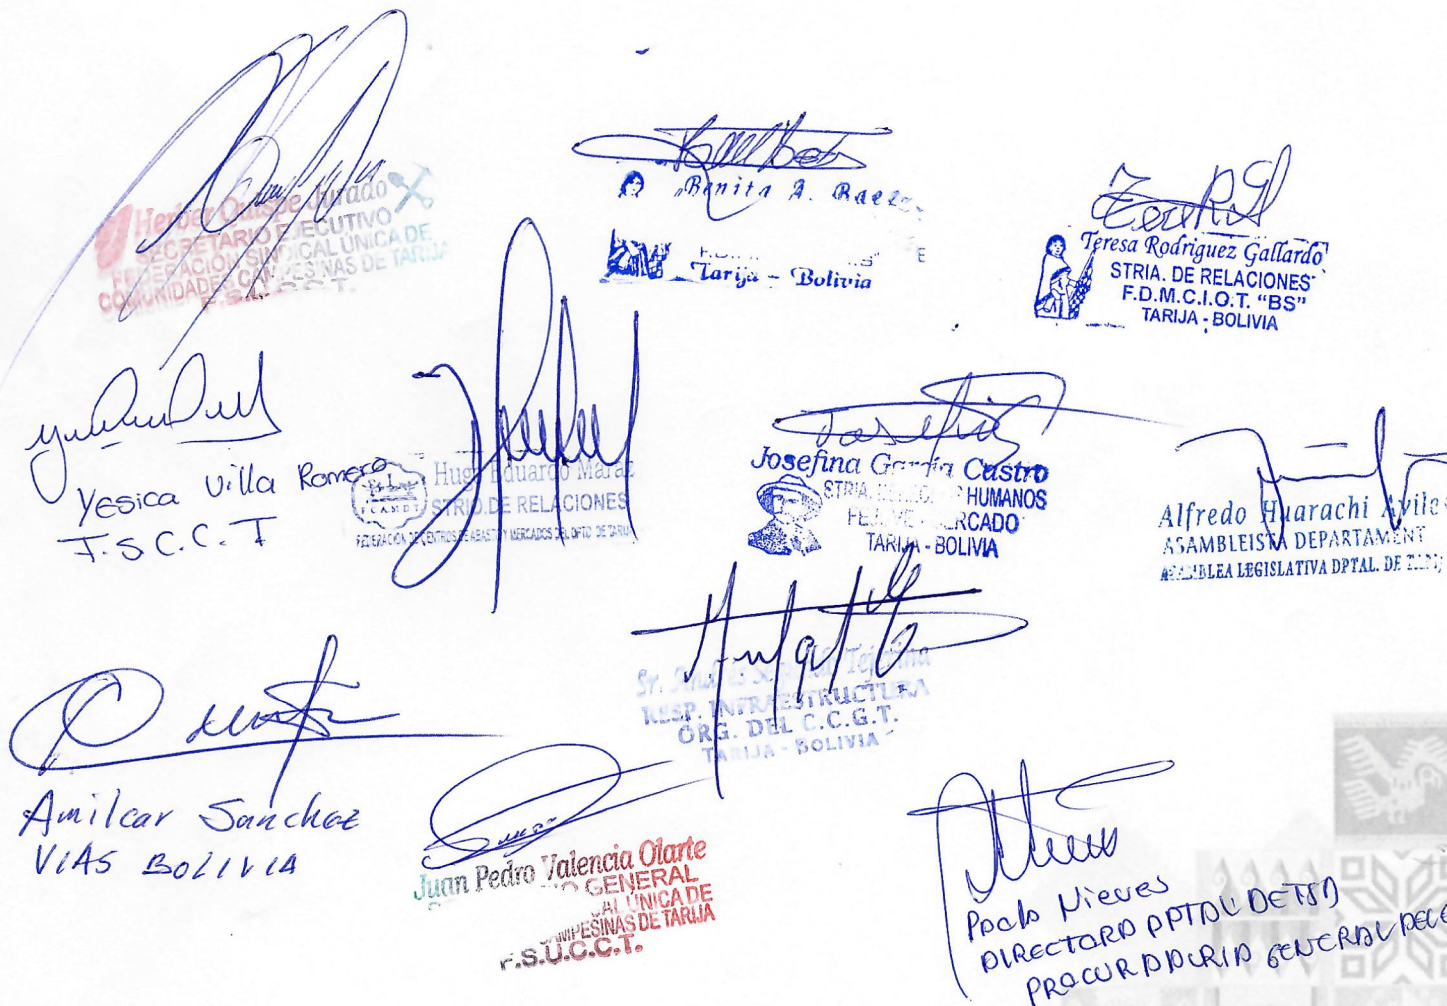 Herber Quispe Jurado
SECRETARIO EJECUTIVO
FEDERACIÓN SINDICAL ÚNICA DE
COMUNIDADES CAMPESINAS DE TARIJA
Benita A.
Tarija - Bolivia
Teresa Rodriguez Gallardo
STRIA. DE RELACIONES
F.D.M.C.I.O.T. "BS"
TARIJA - BOLIVIA
Yesica Villa Romero
F.S.C.C.T
Hugo Eduardo Maraz
STRIO. DE RELACIONES
FEDERACIÓN DE CENTROS DE ABASTO Y MERCADOS DEL DPTO DE TARIJA
Josefina García Castro
STRIA. HUMANOS
TARIJA - BOLIVIA
Alfredo Huarachi Aviles
ASAMBLEISTA DEPARTAMENT
ASAMBLEA LEGISLATIVA DPTAL. DE
Sr. Tejerina
RESP. INFRAESTRUCTURA
ORG. DEL C.C.G.T.
TARIJA - BOLIVIA
Amilcar Sanchez
VIAS BOLIVIA
Juan Pedro Valencia Olarte
GENERAL
ÚNICA DE
CAMPESINAS DE TARIJA
F.S.U.C.C.T.
Nieves
DIRECTORA DPTAL DE TJA
PROCURADURIA GENERAL DEL E